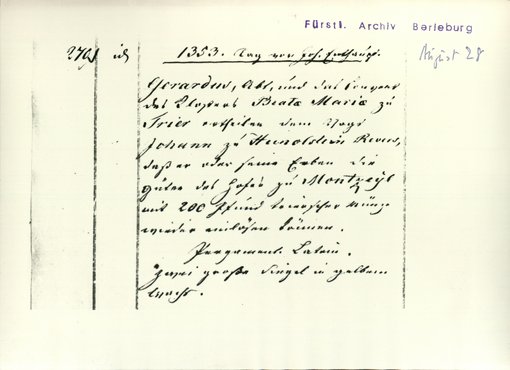 Fürstl. Archiv Berleburg
August 28
279 id 1353. Tag vor Joh. Enthaupt.
Gerardus, Abt, und das Convent
des Closters Beatæ Mariæ zu
Trier ertheilen dem Vogt
Johann zu Hunolstein Revers,
daß er oder seine Erben die
Güter des Hofes zu
mit 200 Pfund trierscher Münz
wieder einlösen können.
Pergament. Latein.
Zwei große Siegel in gelbem
Wachs.